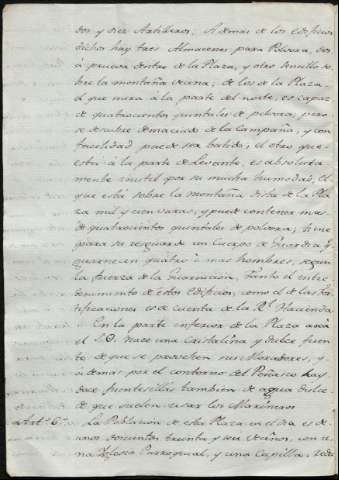 dos y diez Artilleros. Ademas de los edificios
dichos hay tres Almacenes para Polvora, dos
á prueva dentro de la Plaza, y otro sencillo so-
bre la montaña vecina; de los de la Plaza
el que mira á la parte del norte, es capaz
de quatrocientos quintales de polvora, pero
se descubre demaciado de la campaña, y con
facilidad puede ser batido; el otro que
esta á la parte de Levante, es absoluta-
mente inutil por su mucha humedad, el
que está sobre la montaña dista de la Pla-
za mil y cien varas, y puede contener mas
de quatrocientos quintales de polvora; tiene
para su resguardo un Cuerpo de Guardia, q.
guarnecen quatro ó mas hombres, segun
la fuerza de la Guarnicion, tanto el entre-
tenimiento de estos edificios, como el de las For-
tificaciones es de cuenta de la R.l Hacienda
En la parte inferior de la Plaza acia
el S.O. nace una Cristalina y dulce fuente
de que se proveen sus Moradores, y
ademas por el contorno del Peñasco hay
dos fuentesillas tambien de agua dulce
de que suelen usar los Marineros
Art.o 6.o La Poblacion de esta Plaza en el dia es de
unos doscientos treinta y seis vecinos, con u-
na Iglesia Parroquial, y una Capilla,